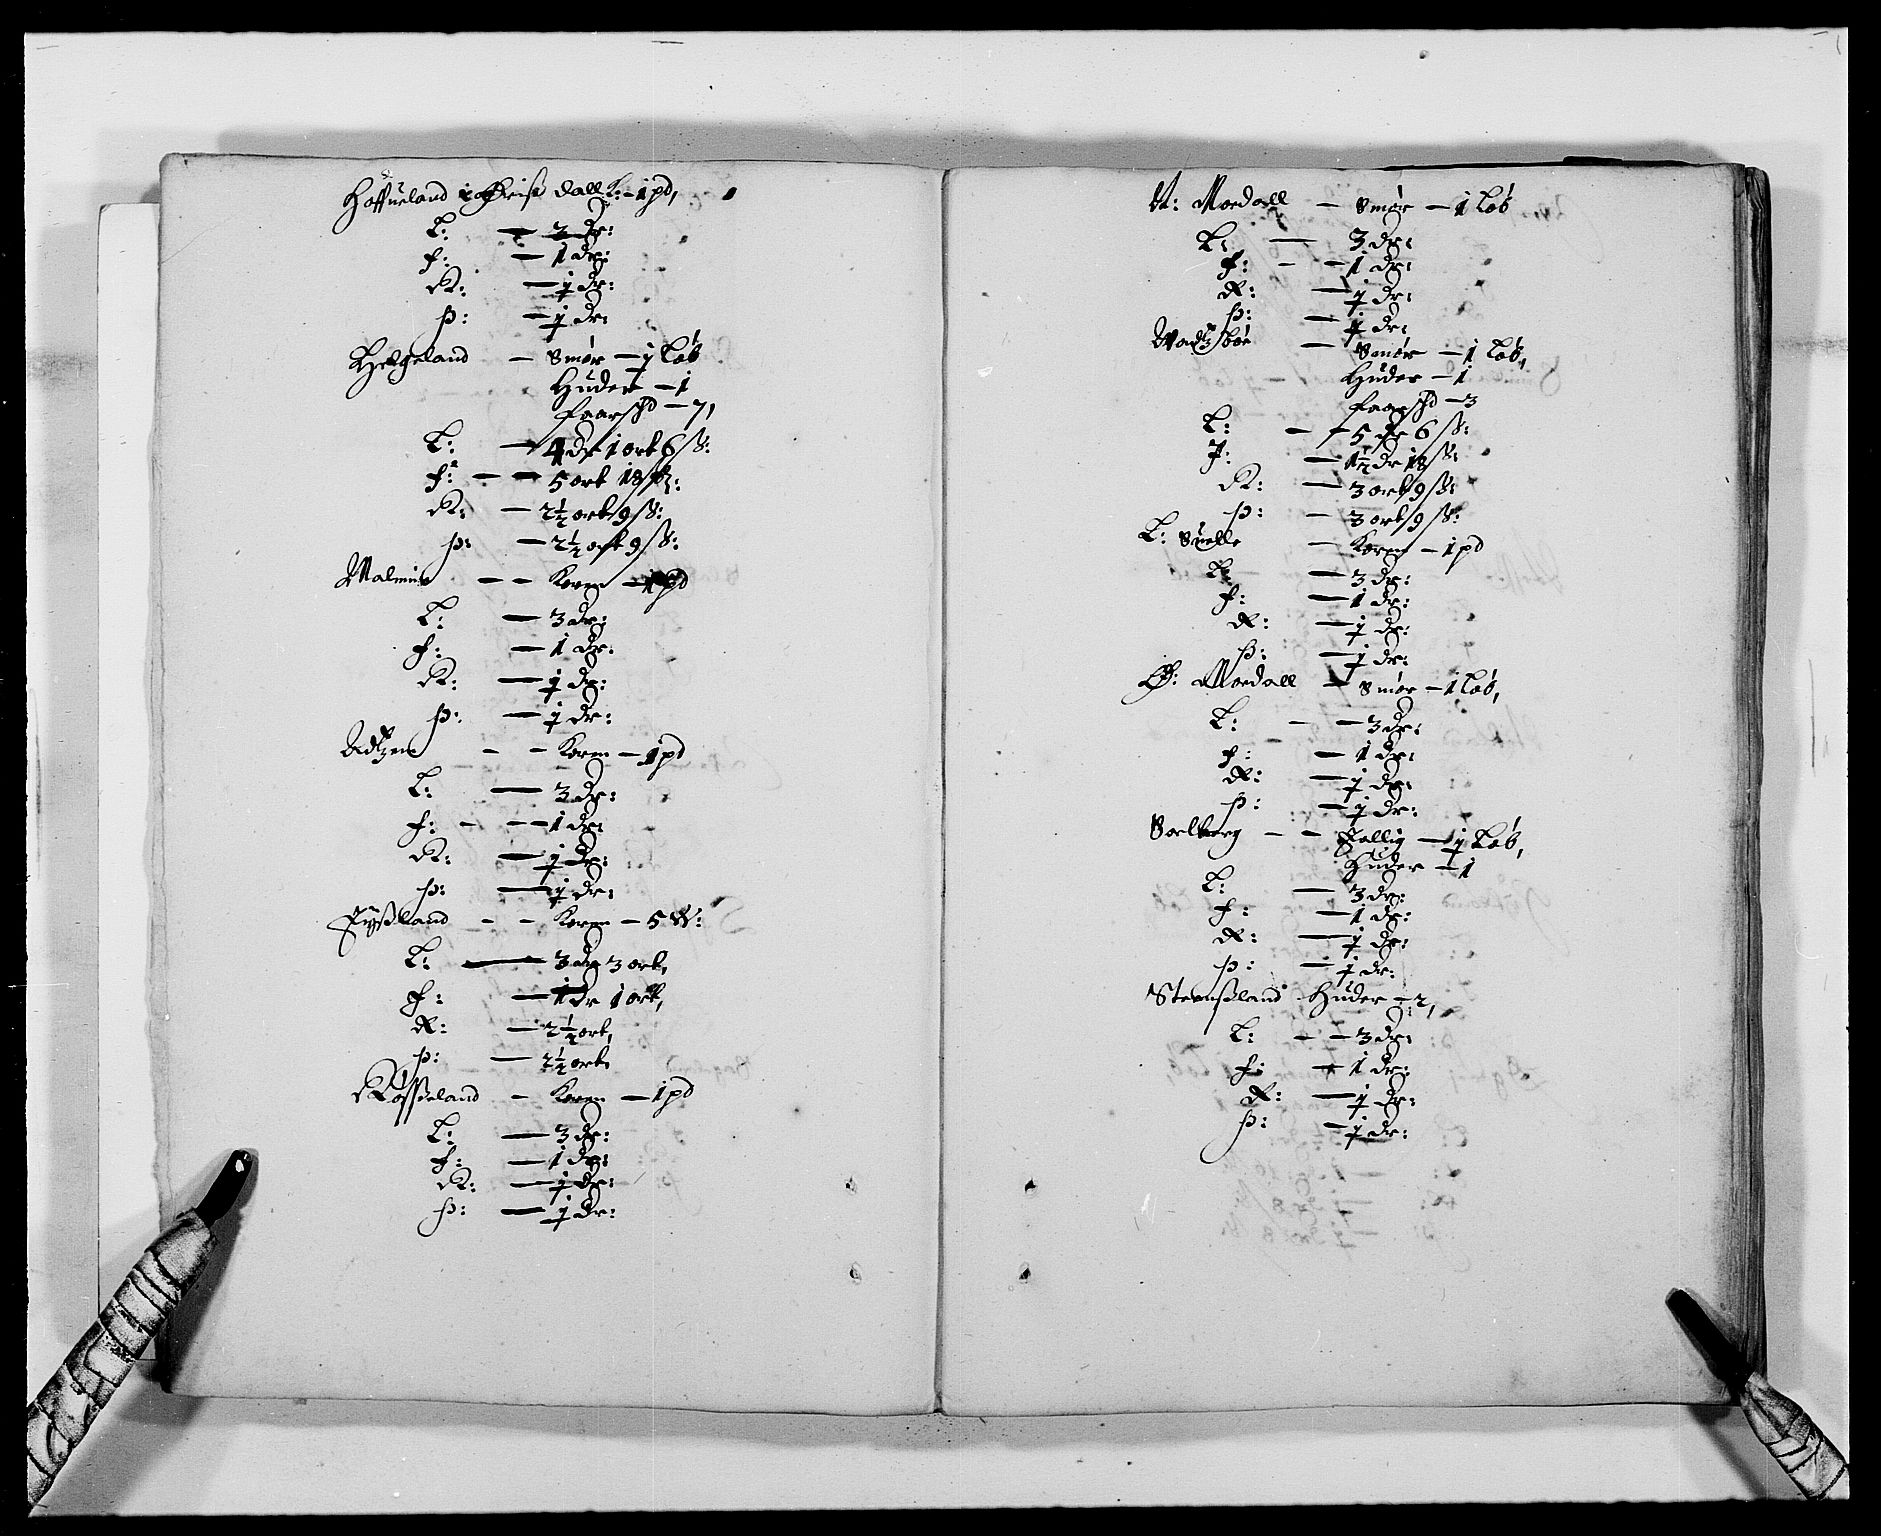 Hoffueland i Theiss dall K: – 1 pd,
L: — 3 dr:
f: — 1 dr:
R: — ½ dr:
p: — ½ dr:
Helgeland — Smør — ½ Løb
Huder — 1
faarsk̄d — 7,
L: — 4 dr 1 ort 6 ß:
f: — — 5 ort 18 ß:
R: — 2½ ort 9 ß:
p: — 2½ ort 9 ß:
Malmin — — Korn — 1 pd
L: — 3 dr:
f: — 1 dr:
R: — ½ dr:
p: — ½ dr:
Adtzen — — Korn — 1 pd
L: — 3 dr:
f: — — 1 dr:
R: — ½ dr:
p: — ½ dr:
Fyssland — — Korn — 5 W:
L: — 3 dr 3 ort,
f: — 1 dr 1 ort,
R: — 2½ ort,
p: — 2½ ort,
Røsseland — Korn — 1 pd
L: — 3 dr:
f: — 1 dr:
R: — ½ dr:
p: — ½ dr:
N: Mordall — Smør — 1 Løb
L: — 3 dr:
f: — — 1 dr:
R: — ½ dr:
p: — ½ dr:
Madtzbøe — Smør — 1 Løb,
Huder — 1
faarsk̄d — 3
L: — — 5 dr 6 ß:
f: — 1½ dr 18 ß:
R: — 3 ort 9 ß:
p: — 3 ort 9 ß:
L: Suelle — Korn — 1 pd
L: — 3 dr:
f: — 1 dr:
R: — ½ dr:
p: — ½ dr:
Ø: Mordall — Smør — 1 Løb,
L: — — 3 dr:
f: — 1 dr:
R: — ½ dr:
p: — ½ dr:
Solberg — — Tallig — ½ Løb,
Huder — 1
L: — 3 dr:
f: — 1 dr:
R: — ½ dr:
p: — ½ dr:
Steenssland Huder — 2,
L: — — 3 dr:
f: — 1 dr:
R: — ½ dr:
p: — ½ dr: